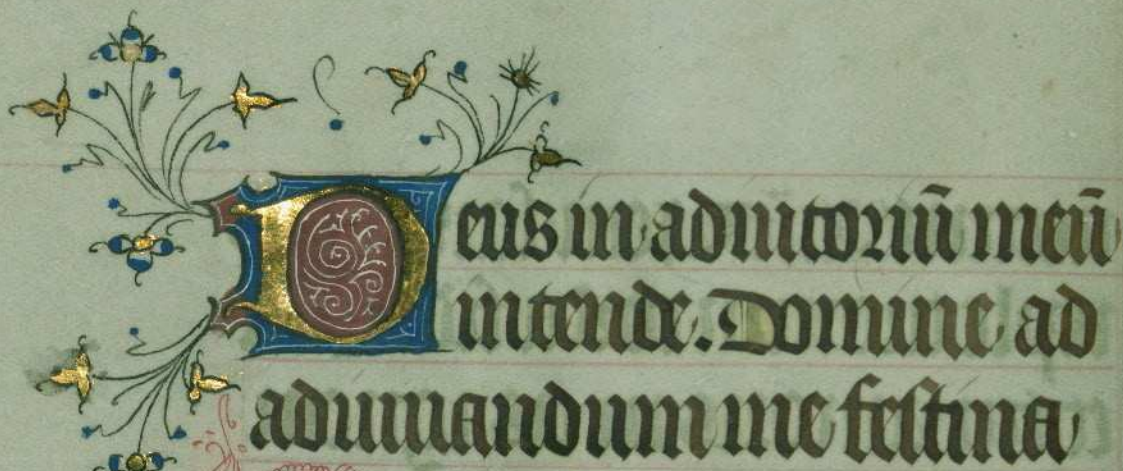 Deus in adiutoriū meū
intende. Domine ad
adiuuandum me festina